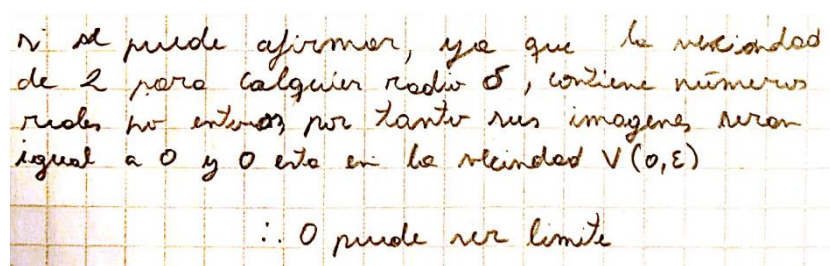 si se puede afirmar, ya que la veciondad
de 2 para calquier radio δ, contiene números
reales no enteros, por tanto sus imagenes seran
igual a 0 y 0 esta en la vecindad V(0,ε)
∴ 0 puede ser limite